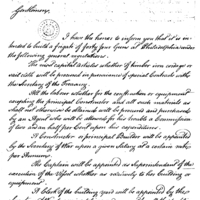 Gentlemen,
I have the honor to inform you that it is in-
tended to build a frigate of forty four Guns at Philadelphia under
the following general regulations.
The most capital articles whether of timber iron cordage or
will be procured in pursuance of special Contracts with
the Secretary of the Treasury.
All the labor whether for the construction or equipment
excepting the principal Constructor and all such materials as
shall not otherwise be obtained will be procured and purchased
by an Agent who will be allowed for his trouble a Commission
of two and an half per Cent upon his expenditures.
A Constructor or principal Builder will be appointed
by the Secretary of War upon a given Salary at a certain rate
per Annum.
The Captain will be appointed as Superintendent of the
execution of the Vessel whether as relatively to her building or
equipment.
A Clerk of the building yard will be appointed by the